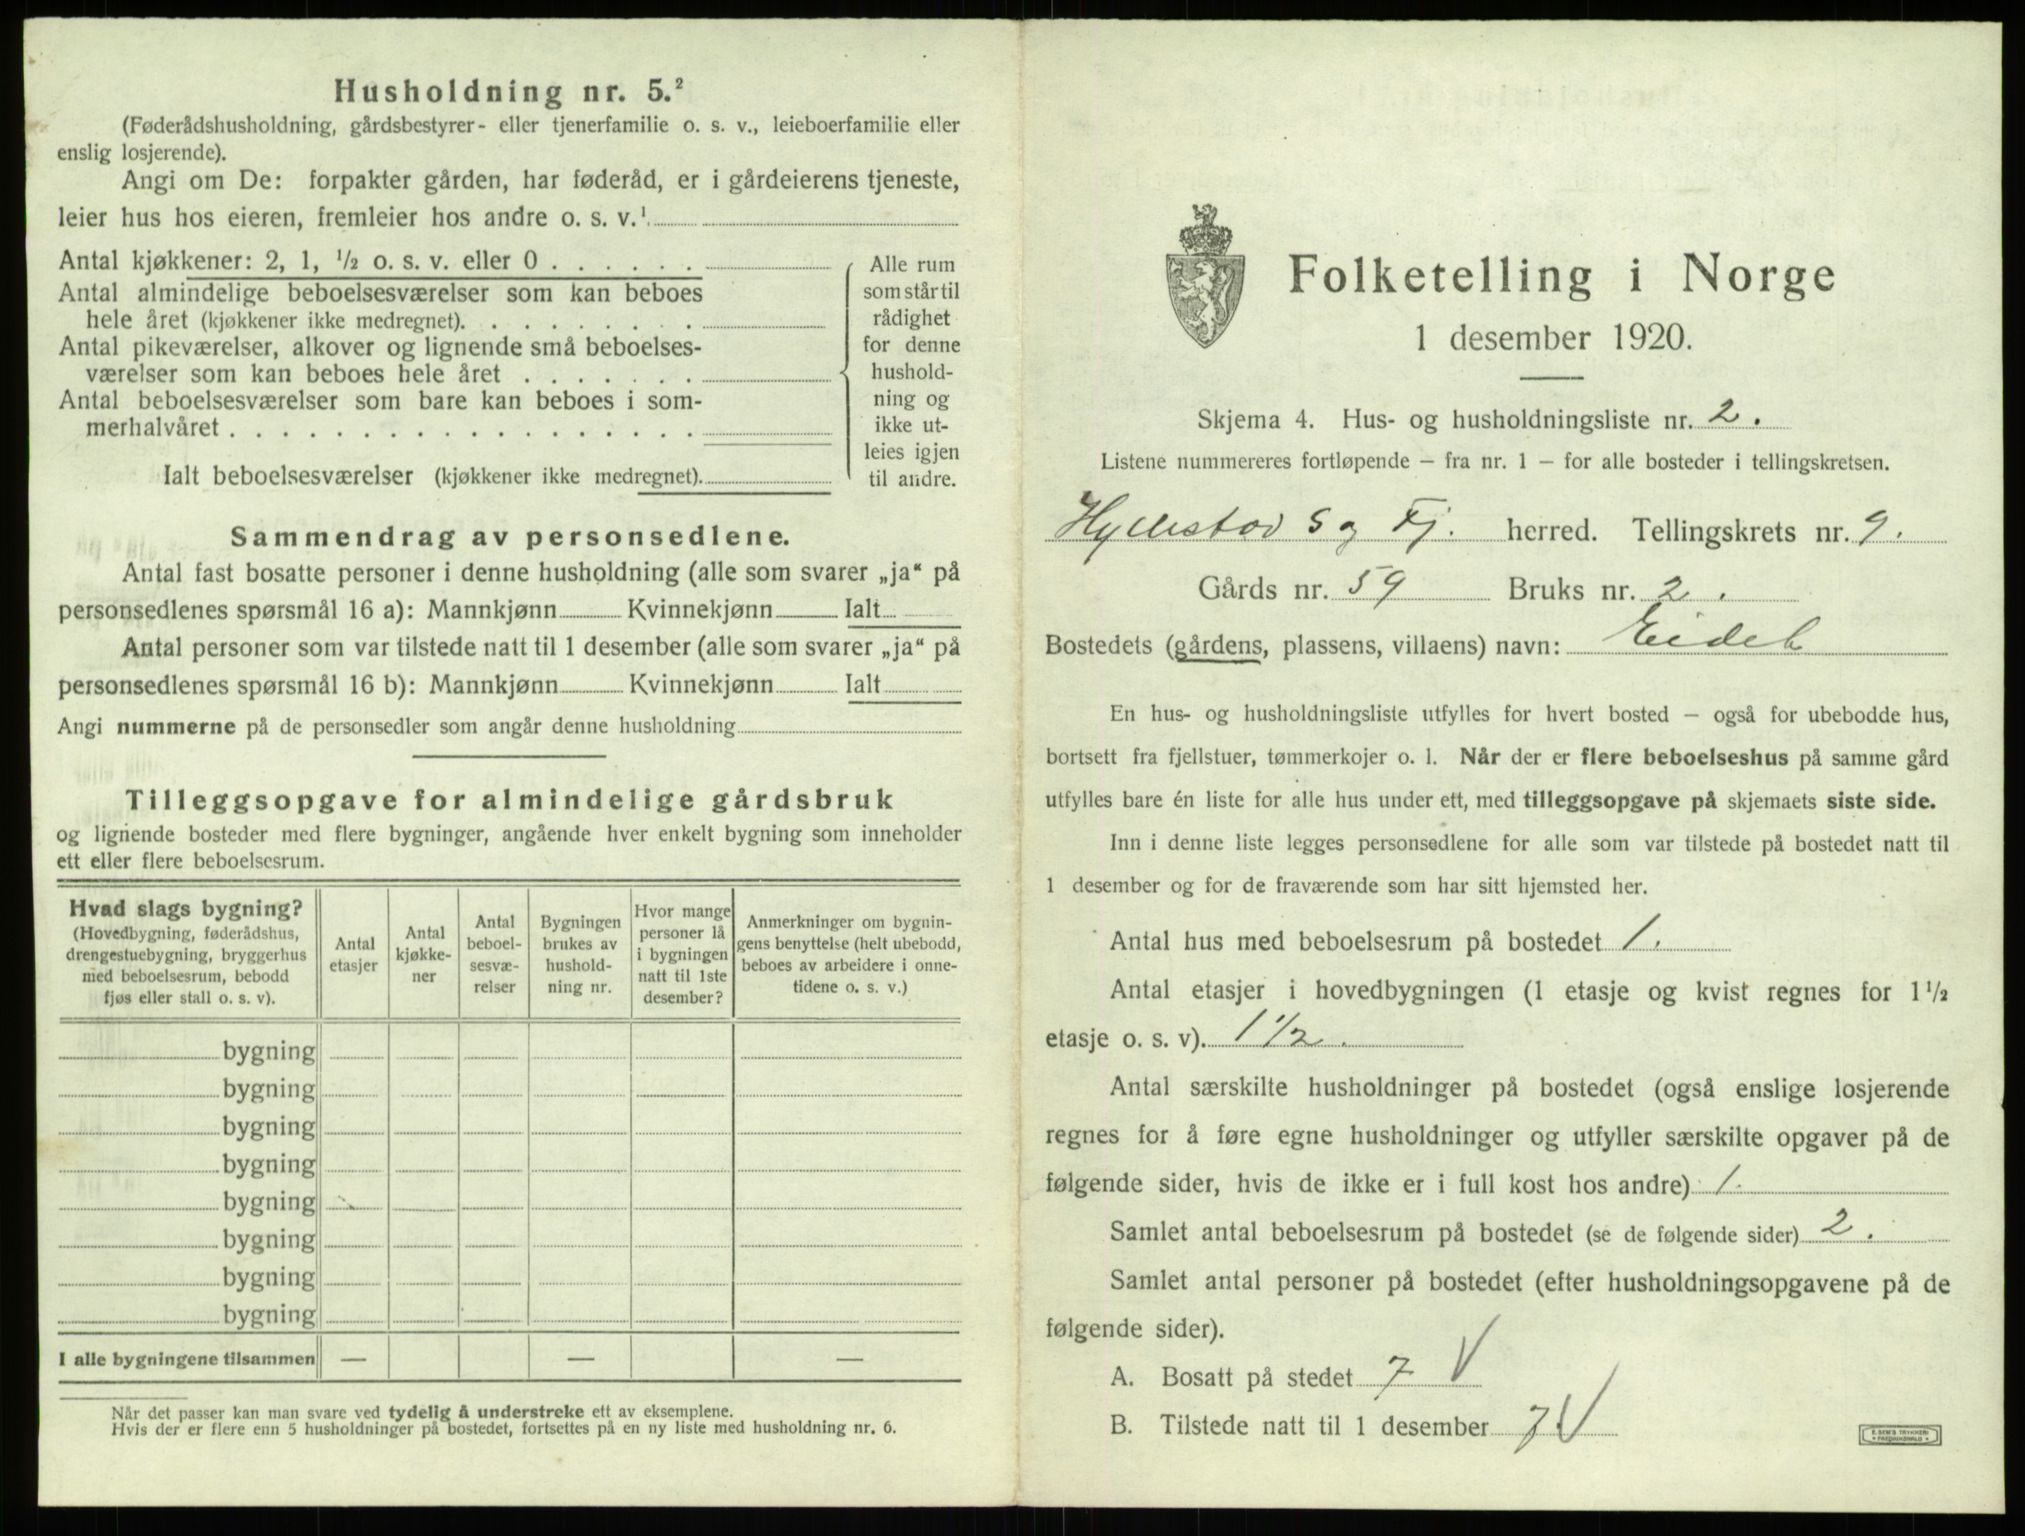 Husholdning nr. 5.²
(Føderådshusholdning, gårdsbestyrer- eller tjenerfamilie o. s. v., leieboerfamilie eller
enslig losjerende).
Angi om De: forpakter gården, har føderåd, er i gårdeierens tjeneste,
leier hus hos eieren, fremleier hos andre o. s. v.¹
Antal kjøkkener: 2, 1, ½ o. s. v. eller 0 . . . . . .
Antal almindelige beboelsesværelser som kan beboes
hele året (kjøkkener ikke medregnet). . . . . . . . .
Antal pikeværelser, alkover og lignende små beboelses-
værelser som kan beboes hele året . . . . . . .
Antal beboelsesværelser som bare kan beboes i som-
merhalvåret . . . . . . . . . . . . . . . . . .
Ialt beboelsesværelser (kjøkkener ikke medregnet).
Alle rum
som står til
rådighet
for denne
hushold-
ning og
ikke ut-
leies igjen
til andre.
Sammendrag av personsedlene.
Antal fast bosatte personer i denne husholdning (alle som svarer „ja“ på
personsedlenes spørsmål 16 a): Mannkjønn Kvinnekjønn Ialt
Antal personer som var tilstede natt til 1 desember (alle som svarer „ja“ på
personsedlenes spørsmål 16 b): Mannkjønn Kvinnekjønn Ialt
Angi nummerne på de personsedler som angår denne husholdning
Tilleggsopgave for almindelige gårdsbruk
og lignende bosteder med flere bygninger, angående hver enkelt bygning som inneholder
ett eller flere beboelsesrum.
Hvad slags bygning?
(Hovedbygning, føderådshus,
drengestuebygning, bryggerhus
med beboelsesrum, bebodd
fjøs eller stall o. s. v).
Antal
etasjer
Antal
kjøkke-
ner
Antal
beboel-
sesvæ-
relser
Bygningen
brukes av
hushold-
ning nr.
Hvor mange
personer lå
i bygningen
natt til 1ste
desember?
Anmerkninger om bygnin-
gens benyttelse (helt ubebodd,
beboes av arbeidere i onne-
tidene o. s. v.)
bygning
bygning
bygning
bygning
bygning
bygning
bygning
bygning
I alle bygningene tilsammen — — —
Når det passer kan man svare ved tydelig å understreke ett av eksemplene.
Hvis der er flere enn 5 husholdninger på bostedet, fortsettes på en ny liste med husholdning nr. 6.
Folketelling i Norge
1 desember 1920.
Skjema 4. Hus- og husholdningsliste nr. 2.
Listene nummereres fortløpende – fra nr. 1 – for alle bosteder i tellingskretsen.
Hyllestad S og Fj. herred. Tellingskrets nr. 9.
Gårds nr. 59 Bruks nr. 2.
Bostedets (gårdens, plassens, villaens) navn: Eidet
En hus- og husholdningsliste utfylles for hvert bosted – også for ubebodde hus,
bortsett fra fjellstuer, tømmerkojer o. l. Når der er flere beboelseshus på samme gård
utfylles bare én liste for alle hus under ett, med tilleggsopgave på skjemaets siste side.
Inn i denne liste legges personsedlene for alle som var tilstede på bostedet natt til
1 desember og for de fraværende som har sitt hjemsted her.
Antal hus med beboelsesrum på bostedet 1.
Antal etasjer i hovedbygningen (1 etasje og kvist regnes for 1 ½
etasje o. s. v). 1 ½.
Antal særskilte husholdninger på bostedet (også enslige losjerende
regnes for å føre egne husholdninger og utfyller særskilte opgaver på de
følgende sider, hvis de ikke er i full kost hos andre) 1.
Samlet antal beboelsesrum på bostedet (se de følgende sider) 2.
Samlet antal personer på bostedet (efter husholdningsopgavene på de
følgende sider).
A. Bosatt på stedet 7 V
B. Tilstede natt til 1 desember 7. V
E. SEM'S TRYKKERI
FREDRIKSHALD